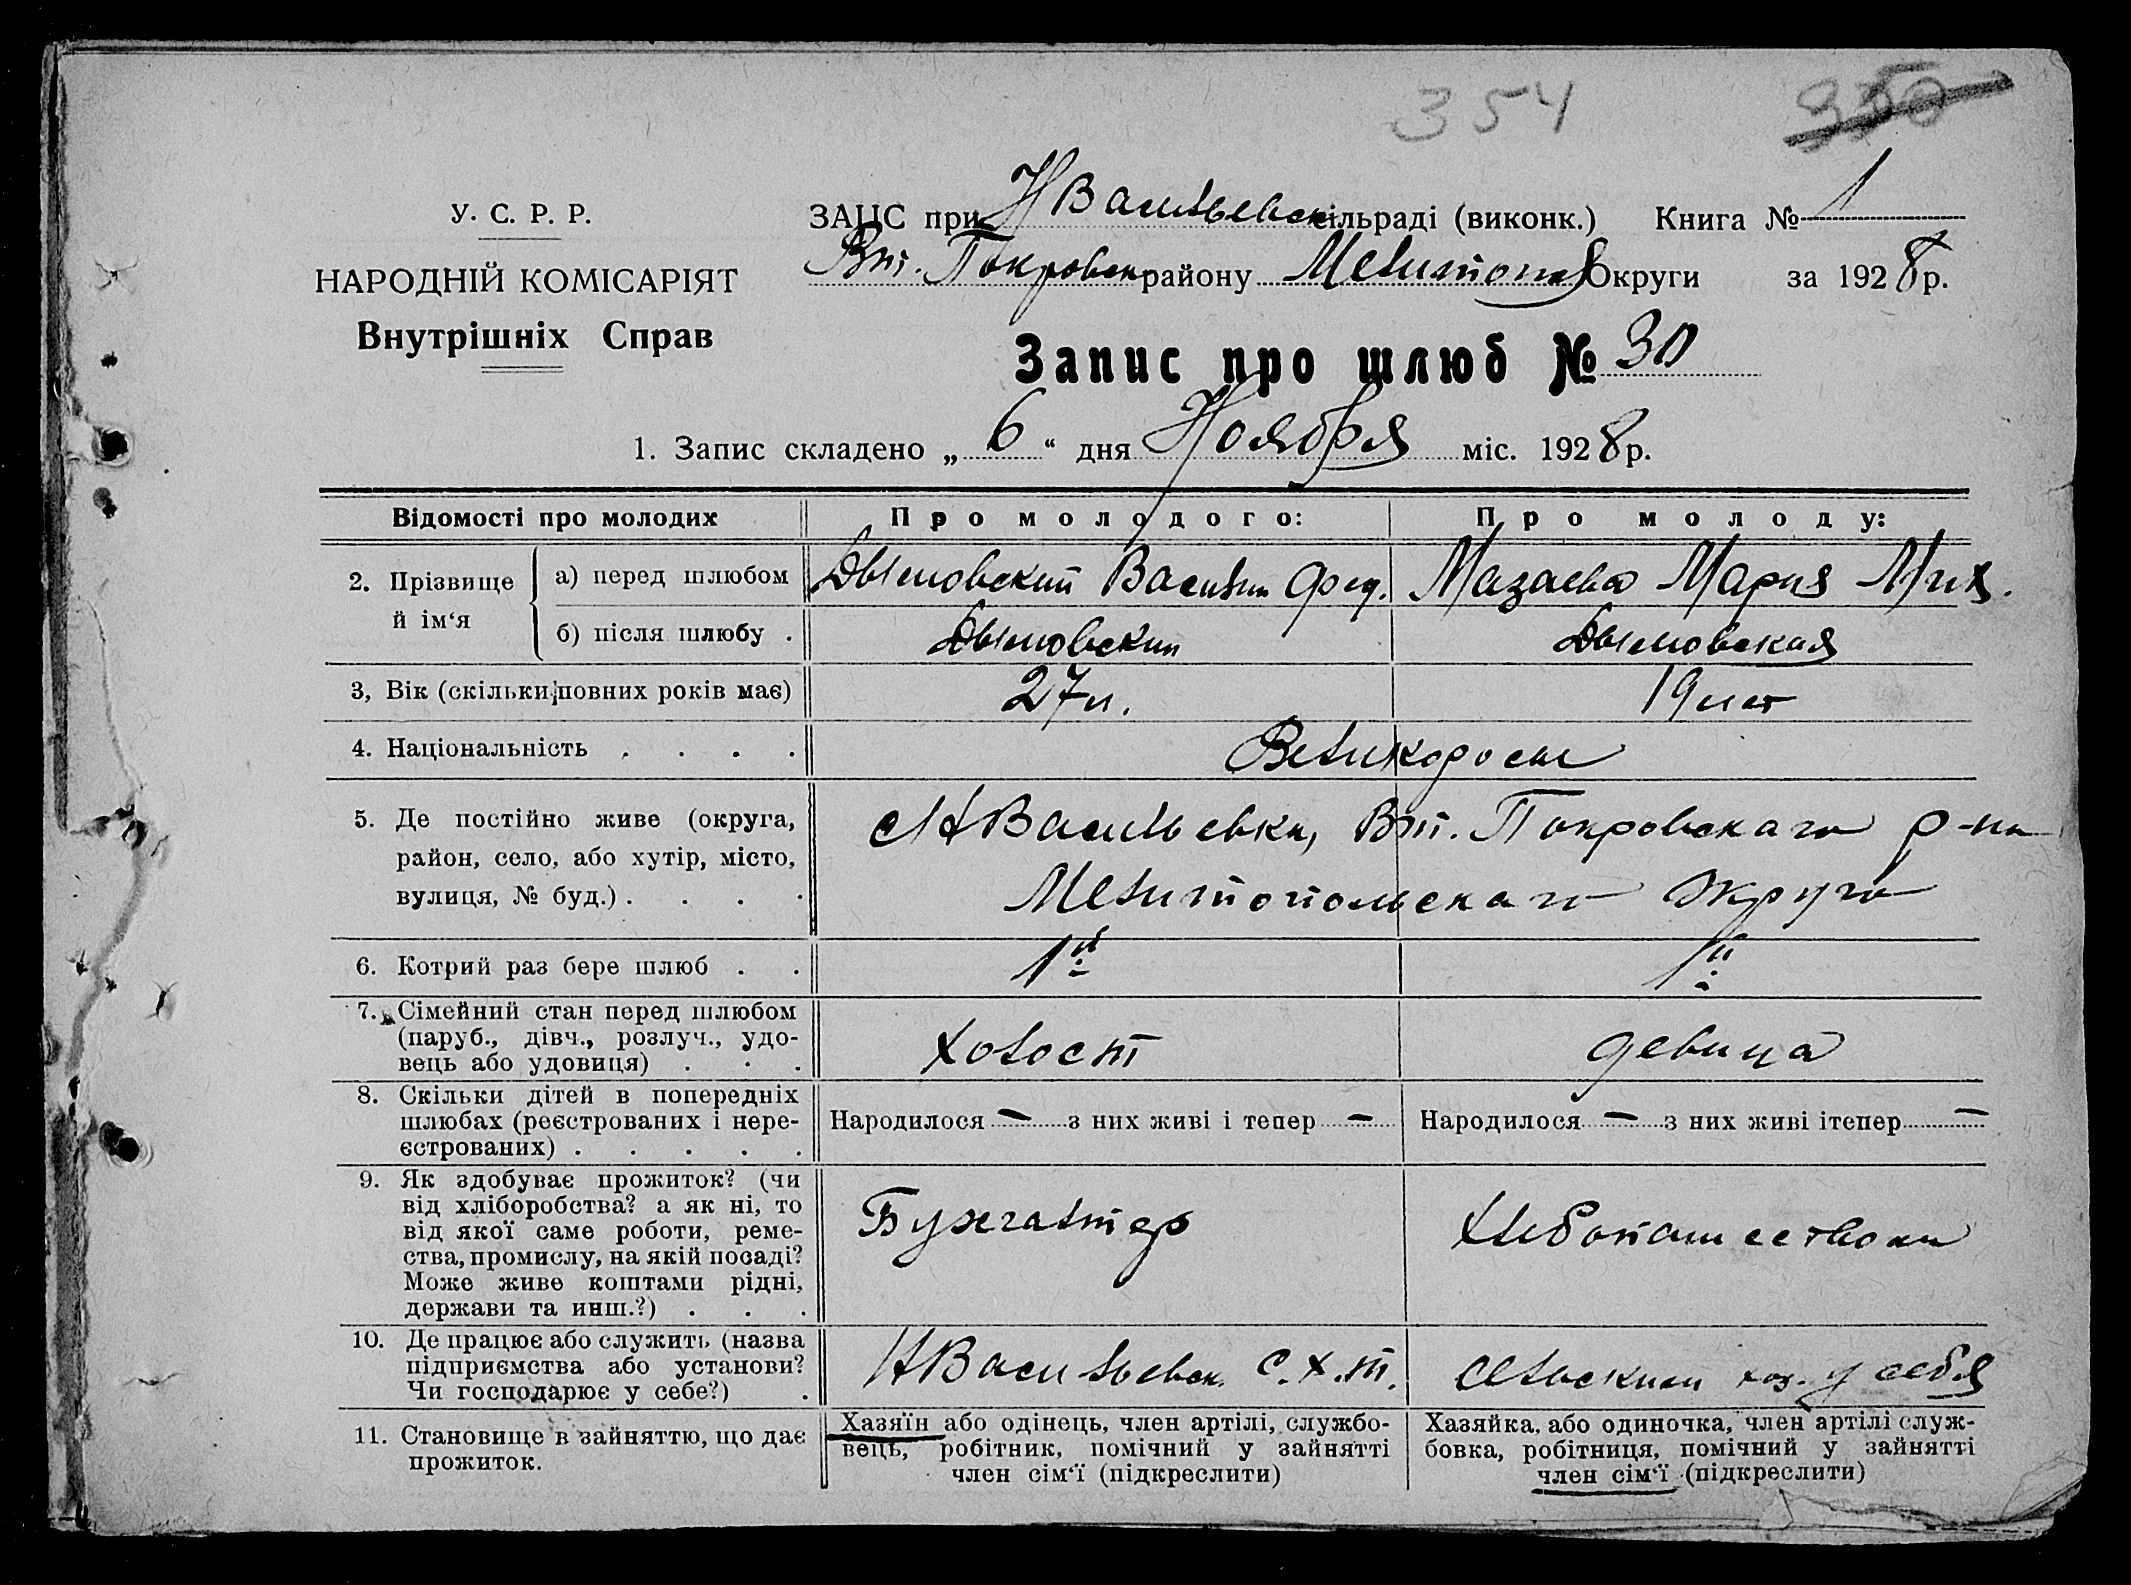 354 350
У. С. Р. Р.
НАРОДНІЙ КОМІСАРІЯТ
Внутрішніх Справ
ЗАЦС при НВасильевск сільраді (виконк.) Книга № 1
Вт. Покровск району Мелитопол Округи за 1928 р.
Запис про шлюб № 30
1. Запис складено „ 6 “ дня Ноября міс. 1928 р.
Відомості про молодих
Про молодого:
Про молоду:
2. Прізвище й ім‘я
а) перед шлюбом
Дымовский Василий Фед.
Мазаева Мария Мих.
б) після шлюбу .
Дымовский
Дымовская
3, Вік (скільки повних років має)
27 л.
19 лет
4. Національність . . . .
Великоросы
5. Де постійно живе (округа,
район, село, або хутір, місто,
вулиця, № буд.) . . . .
с НВасильевка, Вт. Покровскаго р-на
Мелитопольскаго Округа
6. Котрий раз бере шлюб . .
1й
1й
7. Сімейний стан перед шлюбом
(паруб., дівч., розлуч., удо-
вець або удовиця) . . .
холост
девица
8. Скільки дітей в попередніх
шлюбах (реєстрованих і нере-
єстрованих) . . . . .
Народилося — з них живі і тепер —
Народилося — з них живі ітепер —
9. Як здобуває прожиток? (чи
від хліборобства? а як ні, то
від якої саме роботи, реме-
ства, промислу, на якій посаді?
Може живе коштами рідні,
держави та инш.?) . . .
Бухгалтер
Хлебопашеством
10. Де працює або служить (назва
підприємства або установи?
Чи господарює у себе?) .
НВасильевск. С.Х.Т.
сельским хоз. у себя
11. Становище в зайняттю, що дає
прожиток.
Хазяїн або одінець, член артілі, службо-
вець, робітник, помічний у зайнятті
член сім‘ї (підкреслити)
Хазяйка, або одиночка, член артілі служ-
бовка, робітниця, помічний у зайнятті
член сім‘ї (підкреслити)